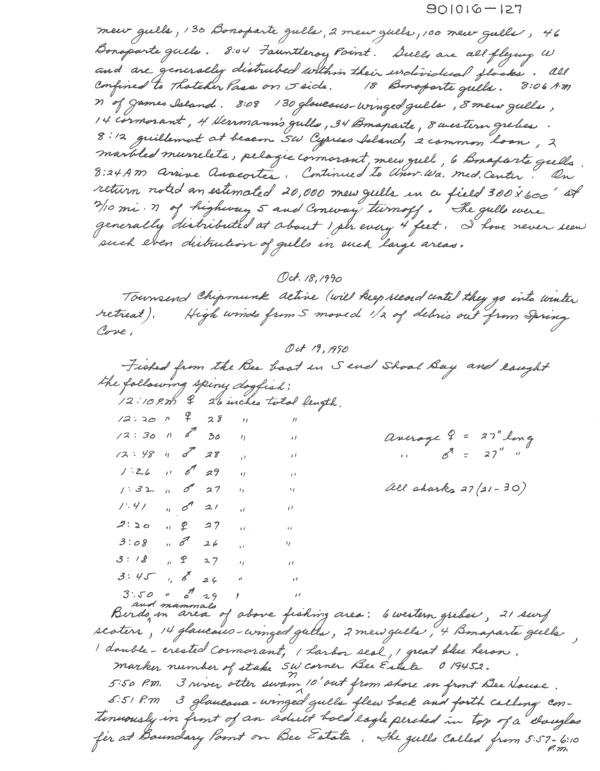 901016-127
mew gulls, 130 Bonaparte gulls, 2 mew gulls, 100 mew gulls, 46
Bonaparte gulls. 8:04 Fauntleroy Point. Gulls are all flying W
and are generally distribued within their individual flocks. All
confined to Thatcher Pass on S side. 18 Bonaparte gulls. 8:06 AM
N of James Island. 8:08 130 glaucous-winged gulls, 8 mew gulls,
14 cormorant, 4 Herrmann's gulls, 34 Bonaparte, 8 western grebes.
8:12 guillemot at beacon SW Cypress Island, 2 common loon, 2
marbled murrelets, pelagic cormorant, mew gull, 6 Bonaparte gulls.
8:24 AM Arrive Anacortes. Continued to Univ. Wa. Med. Center. On
return noted an estimated 20,000 mew gulls in a field 300'x600' at
2/10 mi. N of highway 5 and Conway turnoff. The gulls were
generally distributed at about 1 per every 4 feet. I have never seen
such even distribution of gulls in such large areas.
Oct. 18, 1990
Townsend Chipmunk active (will keep record until they go into winter
retreat). High winds from S moved 1/2 of debris out from Spring
Cove.
Oct 19, 1990
Fished from the Bee boat in S end Shoal Bay and caught
the following spiny dogfish:
12:10 P.M. ♀ 26 inches total length.
12:20 " ♀ 28 " "
12:30 " ♂ 30 " " Average ♀ = 27" long
12:48 " ♂ 28 " " " ♂ = 27" "
1:26 " ♂ 29 " "
1:32 " ♂ 27 " " All sharks 27 (21-30)
1:41 " ♂ 21 " "
2:20 " ♀ 27 " "
3:08 " ♂ 26 " "
3:18 " ♀ 27 " "
3:45 " ♂ 26 " "
3:50 " ♂ 29 " "
and mammals
Birds in area of above fishing area: 6 western grebes, 21 surf
scoters, 14 glaucous-winged gulls, 2 mew gulls, 4 Bonaparte gulls,
1 double-crested cormorant, 1 harbor seal, 1 great blue heron.
Marker number of stake SW corner Bee Estate 019452.
5:50 P.M. 3 river otter swam N 10' out from shore in front Bee House.
5:51 P.M 3 glaucous-winged gulls flew back and forth calling con-
tinuously in front of an adult bald eagle perched in top of a Douglas
fir at Boundary Point on Bee Estate. The gulls called from 5:57-6:10
P.M.